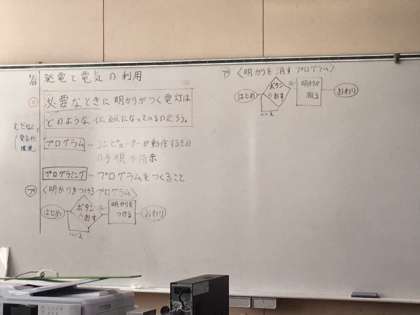 発電と電気の利用
必要なときに明かりがつく電灯は
どのような仕組になっているのだろう。
プログラム－コンピューターが動作するための
手順や指示
プログラミング－プログラムをつくること
ア〈明かりをつけるプログラム〉
はじめ
ボタン
おす
明かりを
つける
おわり
〈明かりを消すプログラム〉
はじめ
ボタン
おす
明かりが
消える
おわり